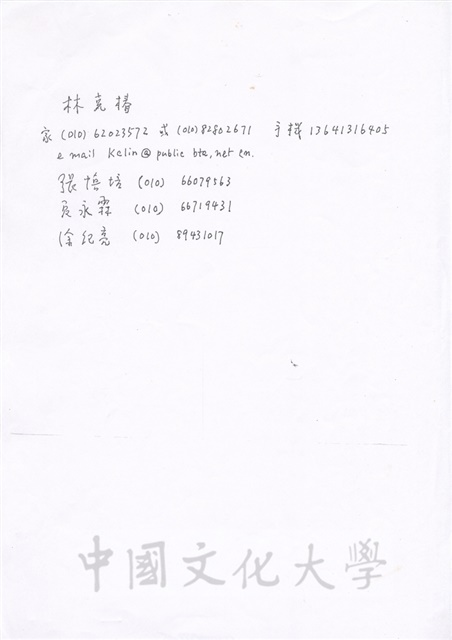 林克椿
家 (010) 62023572 或 (010) 82802671 手機 13641316405
e mail Kclin@public bta, net cn.
張培 (010) 66079563
永霖 (010) 66719431
徐紀亮 (010) 89431017
中國文化大學